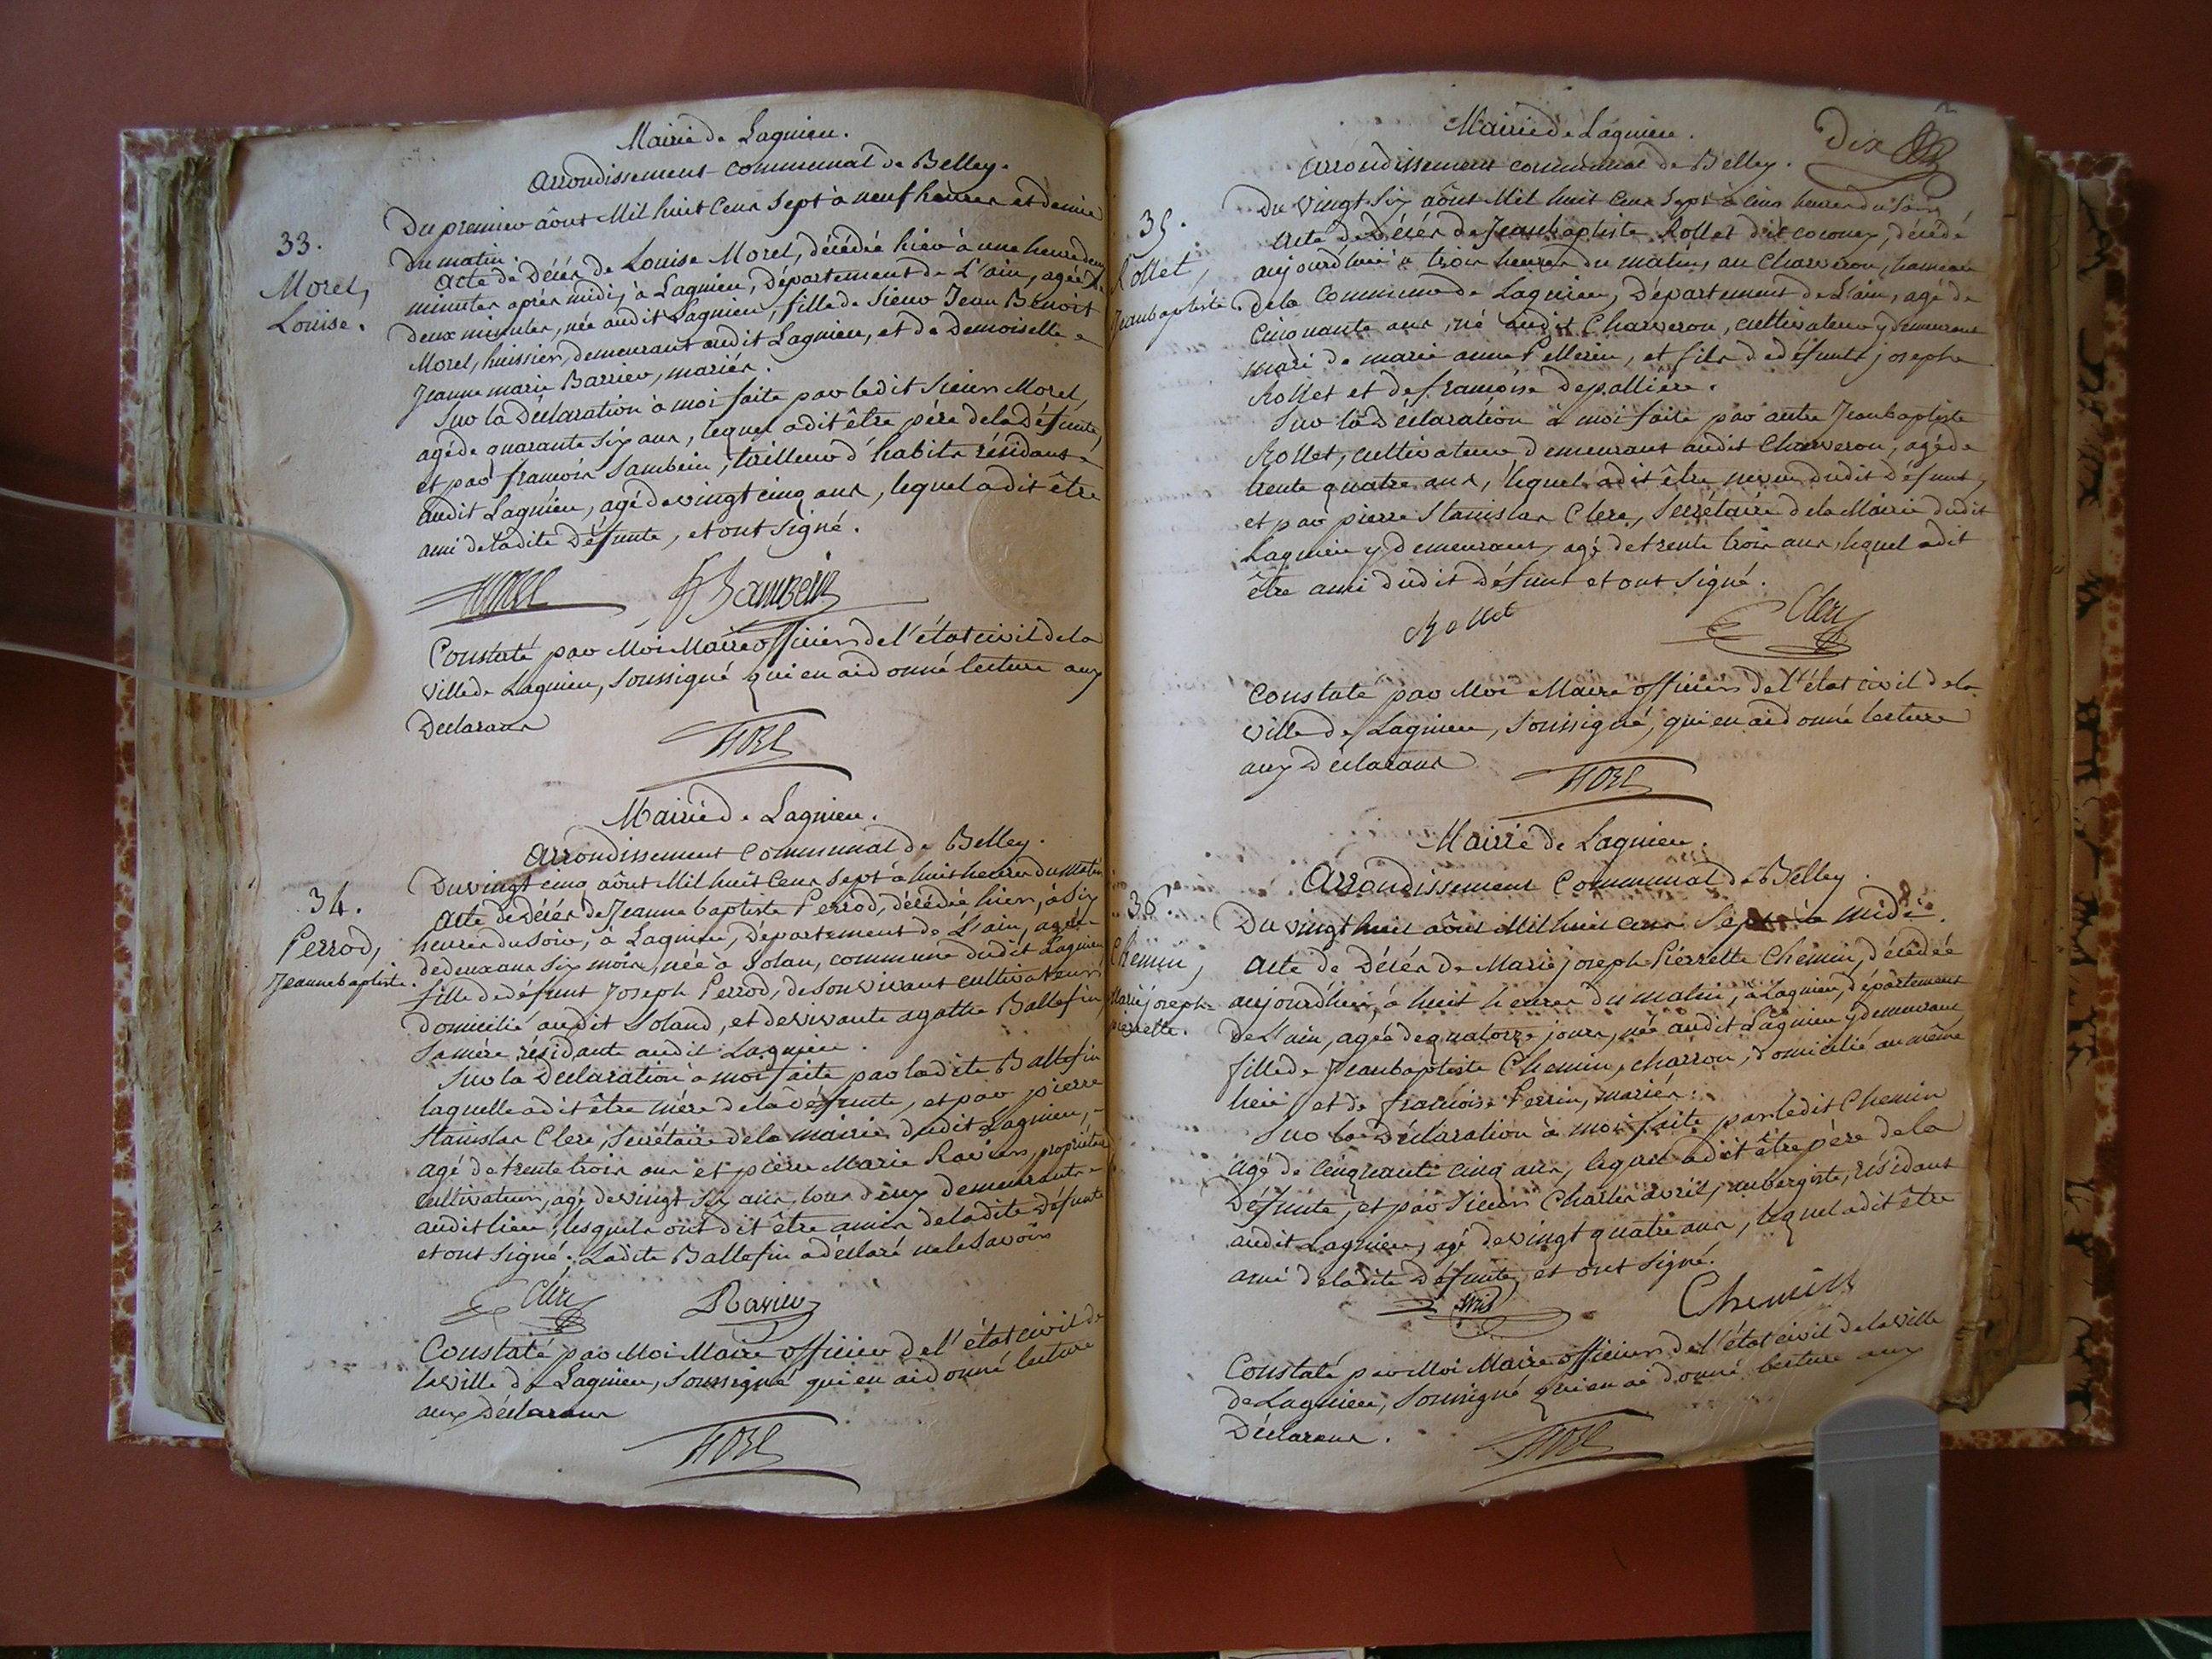 Mairie de Lagnieu.
Arrondissement communal de Belley.
Du premier aôut Mil huit Cens Sept à neuf heures et demie
Du matin.
33.
Morel,
Louise.
Acte de Décés de Louise Morel, décédée hier à une heure deux
minutes aprés midi, à Lagnieu, département de L'ain, agée de
Deux minutes, née audit Lagnieu, fille de Sieur Jean Benoit
Morel, huissier, demeurant audit Lagnieu, et de Demoiselle
Jeanne marie Barrier, mariés.
Sur la Déclaration à moi faite par ledit Sieur Morel,
agé de quarante Six ans, lequel a dit être pére de la défunte,
et par françois Sambein, tailleur d'habits résidant
audit Lagnieu, agé de vingt cinq ans, lequel a dit être
ami de ladite Défunte, et ont signé.
Morel Sambein
Constaté par Moi Maire officier de l'état civil de la
ville de Lagnieu, Soussigné qui en ai donné lecture aux
Declarans
Mairie de Lagnieu.
Arrondissement Communal de Belley.
Du vingt cinq aôut Mil huit Cens Sept à huit heures du matin
34.
Perrod,
Jeanne baptiste.
Acte de décés de Jeanne baptiste Perrod, décédée hier, à Six
heures du Soir, à Lagnieu, Département de L'ain, agée
de deux ans Six mois, née à Solan, commune dudit Lagnieu,
fille de défunt Joseph Perrod, de son vivant cultivateur
domicilié audit Soland, et de vivante agathe Ballefin,
Sa mére résidante audit Lagnieu.
Sur la Declaration à moi faite par ladite Ballefin
laquelle a dit être mére de la défunte, et par pierre
Stanislas Clerc, Secrétaire de la mairie dudit Lagnieu,
agé de trente trois ans et pierre Marie Ravier, propriétaire
cultivateur, agé de vingt Six ans, tous deux demeurants
audit lieu, lesquels ont dit être amis de ladite défunte
et ont signé; Ladite Ballefin a déclaré ne le Savoir
Clerc Ravier
Constaté par Moi Maire officier de l'état civil de
la ville de Lagnieu, Soussigné qui en ai donné lecture
aux Déclarans
Mairie de Lagnieu.
Dix
Arrondissement communal de Belley.
Du vingt Six aôut Mil huit Cens Sept à cinq heures du Soir
35.
Rollet,
Jean baptiste.
Acte de Décés de Jean baptiste Rollet dit , décédé
aujourd'hui à trois heures du matin, au Charveron, hameau
de la Commune de Lagnieu, Département de L'ain, agé de
Cinquante ans, né audit Charveron, cultivateur y demeurant
mari de marie anne Pellerin, et fils de défunts joseph
Rollet et de françoise depalliére.
Sur la Déclaration à moi faite par autre Jean baptiste
Rollet, cultivateur demeurant audit Charveron, agé de
trente quatre ans, lequel a dit être neveu dudit Défunt,
et par pierre Stanislas Clerc, Secrétaire de la Mairie dudit
Lagnieu y demeurant, agé de trente trois ans, lequel a dit
être ami dudit défunt et ont signé.
Rollet Clerc
Constaté par Moi Maire officier de l'état civil de la
ville de Lagnieu, Soussigné, qui en ai donné lecture
aux Déclarans
Mairie de Lagnieu.
Arrondissement Communal de Belley.
Du vingt huit aôut Mil huit cens Sept à midi.
36.
Chemin,
Marie joseph
pierrette.
Acte de Décés de Marie joseph Pierrette Chemin, décédée
aujourd'hui, à huit heures du matin, à Lagnieu, département
de L'ain, agée de quatorze jours, née audit Lagnieu y demeurant,
fille de Jean baptiste Chemin, charron, domicilié au même
lieu, et de françoise Perrin, mariés.
Sur la Déclaration à moi faite par ledit Chemin
agé de Cinquante cinq ans, lequel a dit être pére de la
Défunte, et par Sieur Charles avril, aubergiste, résidant
audit Lagnieu, agé de vingt quatre ans, lequel a dit être
ami de ladite Défunte, et ont signé.
avril Chemin
Constaté par Moi Maire officier de l'état civil de la ville
de Lagnieu, Soussigné qui en ai donné lecture aux
Déclarans.